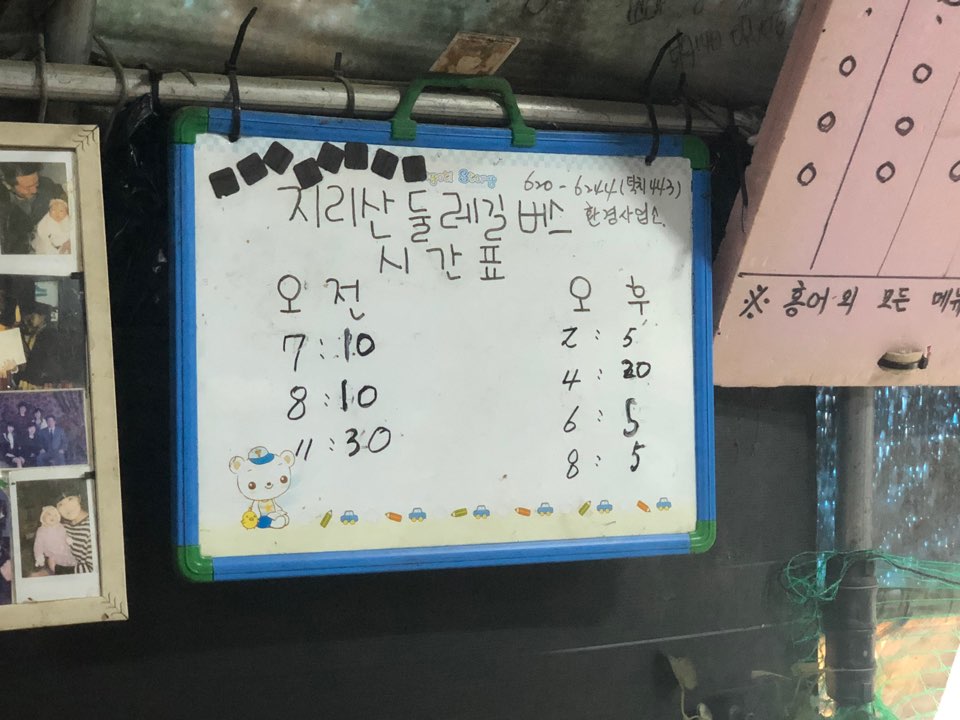 620-6244(턱치 443)
지리산둘레길버스 환경사업소
시간표
오전 오후
7:10 2:5
8:10 4:20
11:30 6:5
8:5
※ 홍어외 모든 메뉴